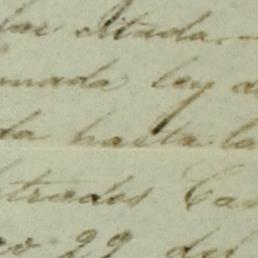 lar citada
mada ley a
da hasta la
trados Cas
ro 29 del